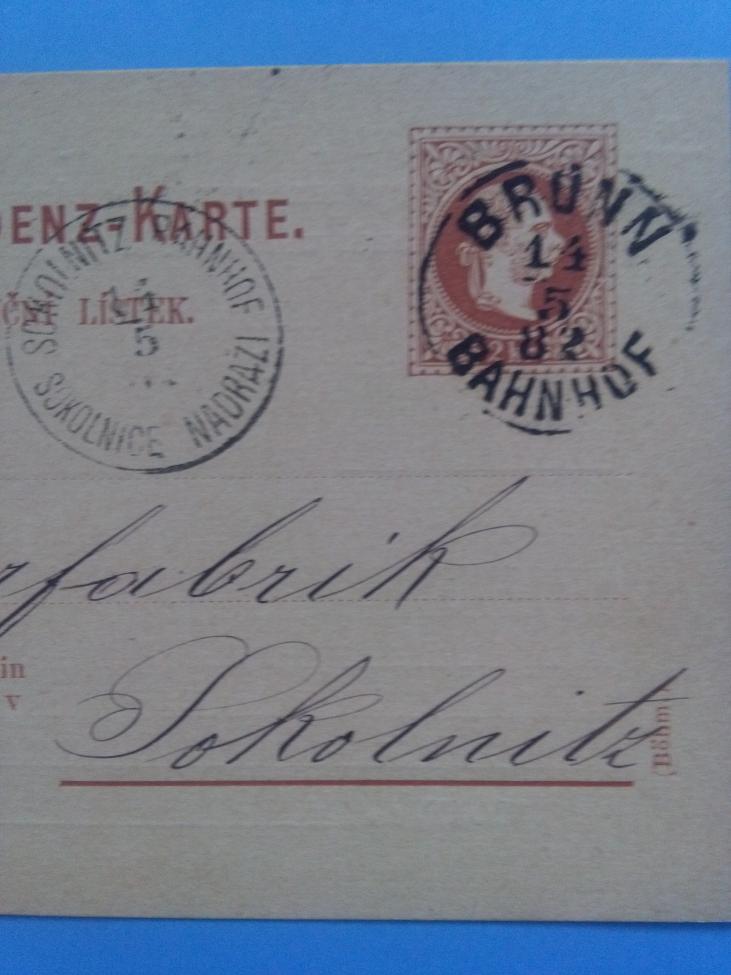 DENZ-KARTE.
LÍSTEK.
SOKOLNITZ BAHNHOF
14
5
SOKOLNICE NADRAŽI
BRÜNN
14
5
82
BAHNHOF
rfabrik
in
v
Sokolnitz
(Böhm.)